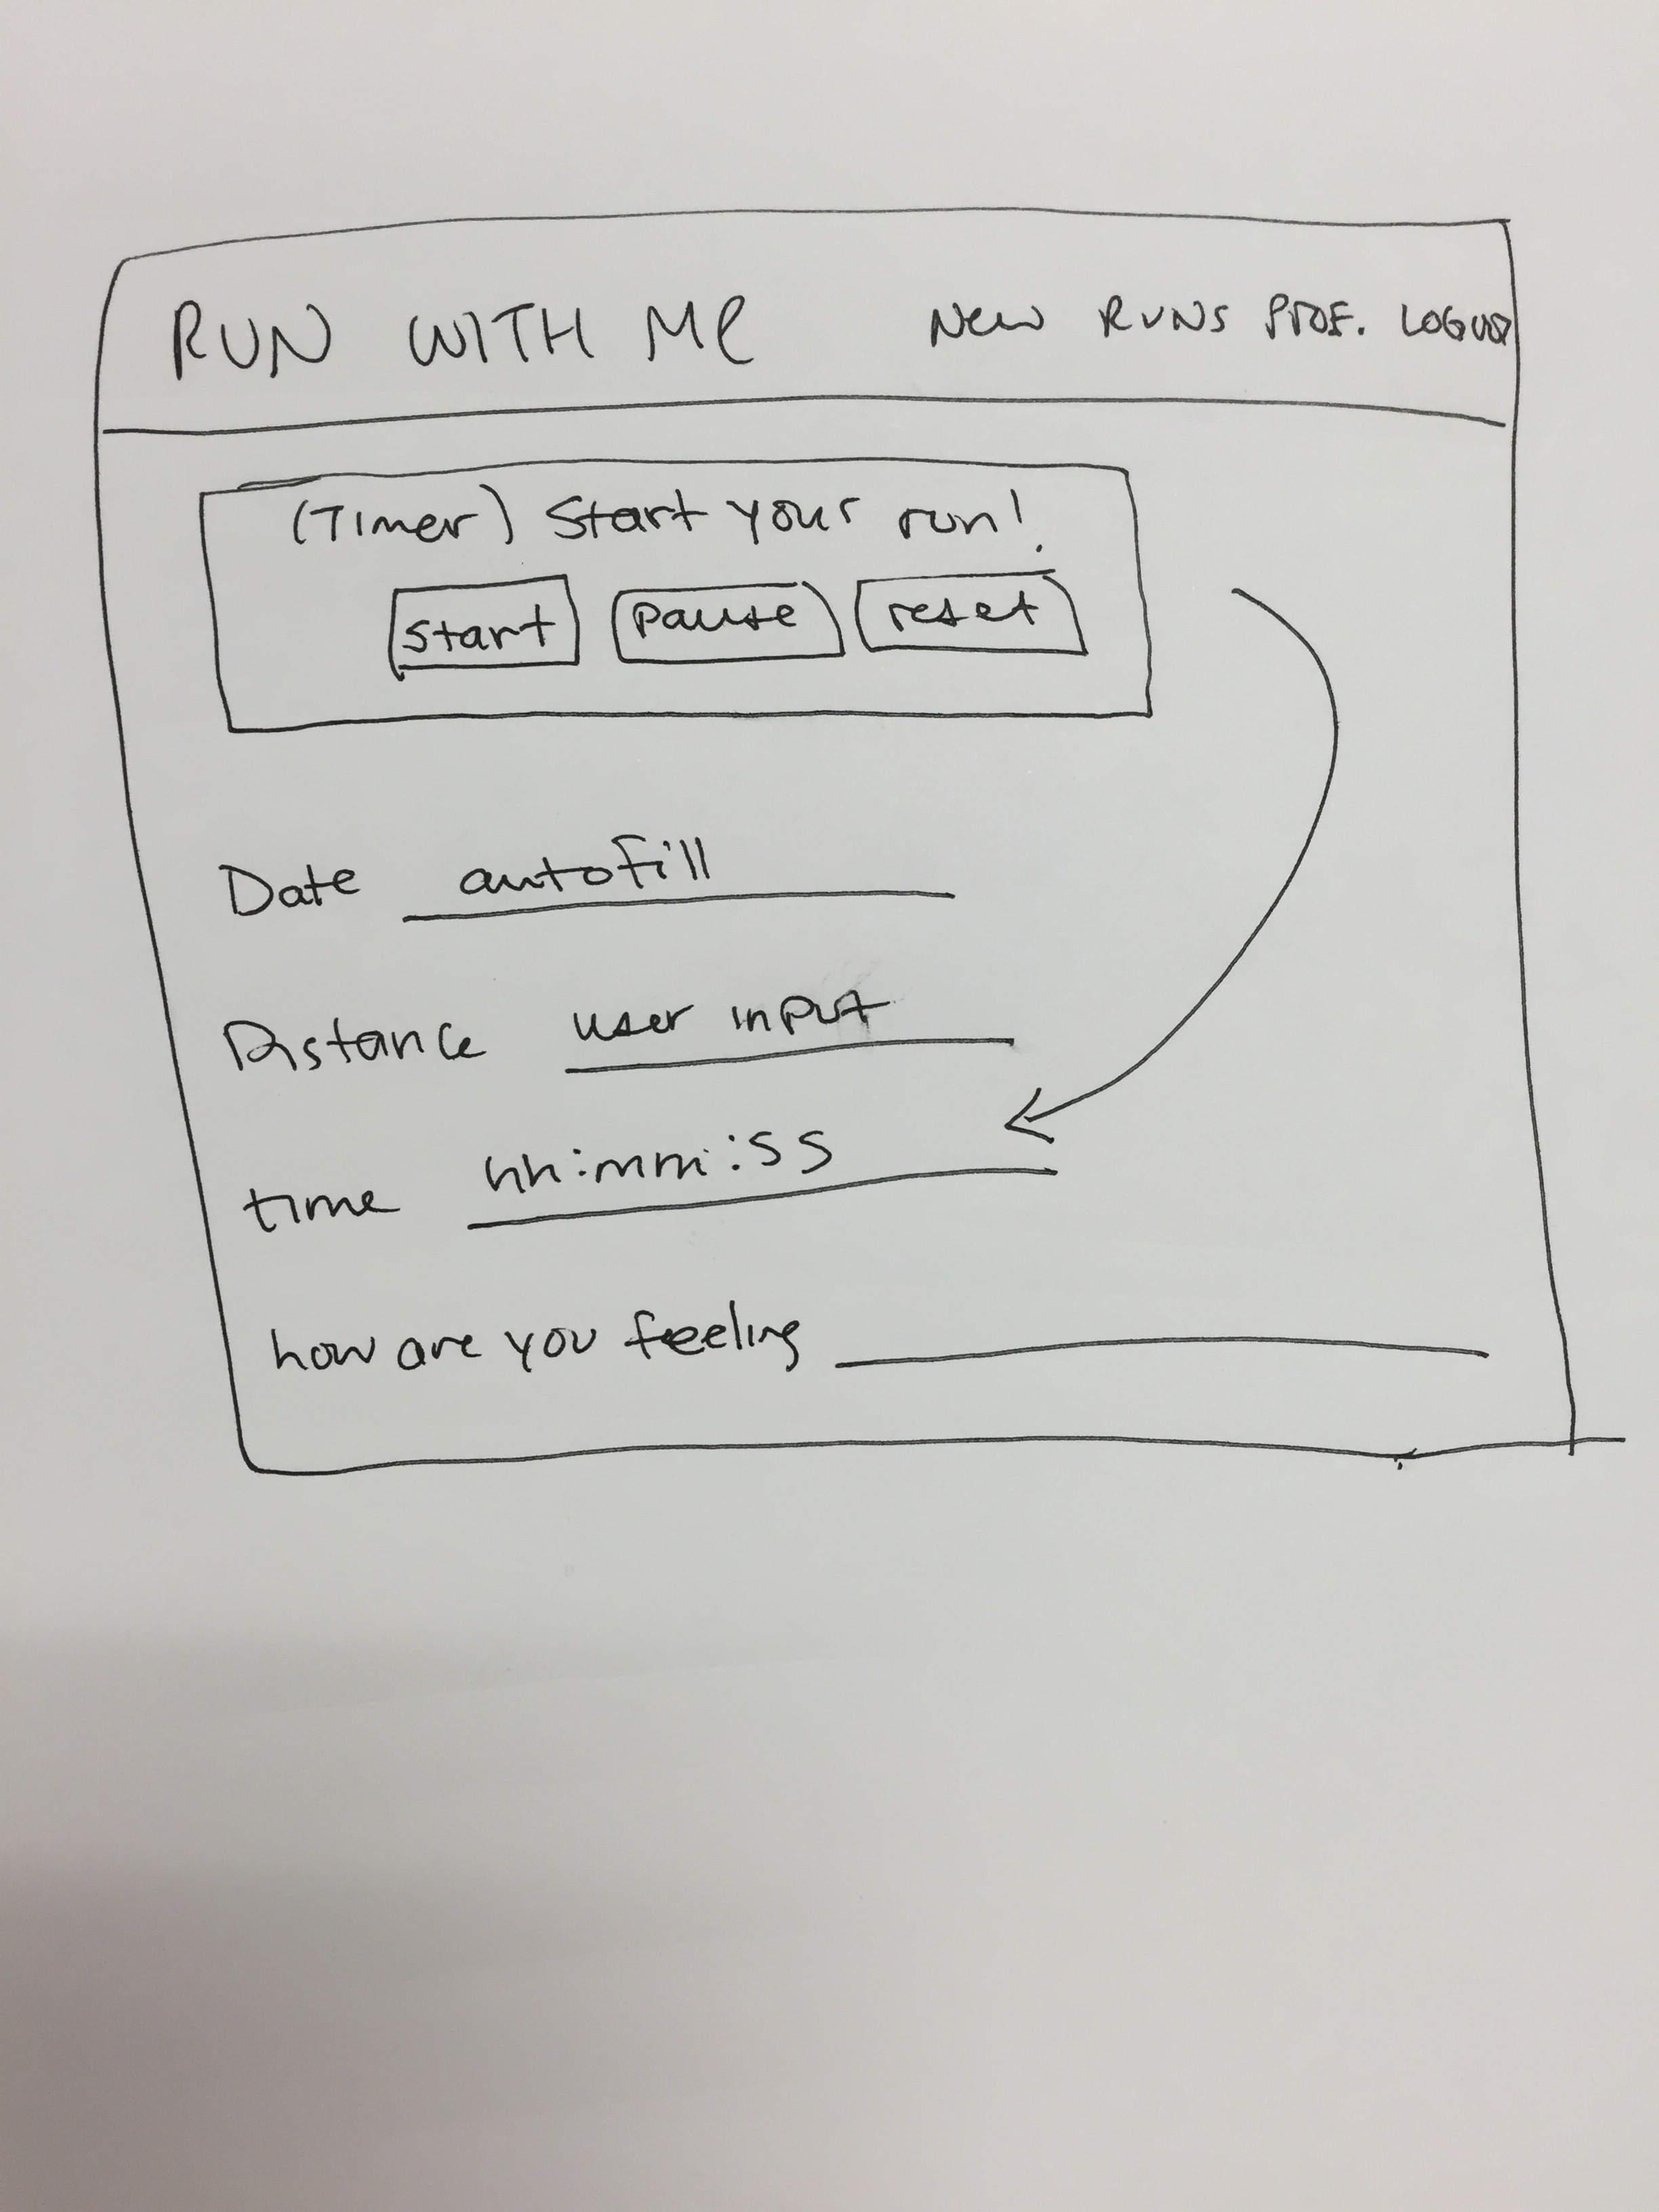 RUN WITH Me New RUNS PROF. LOGOUT
(Timer) Start your run!
start pause reset
Date autofill
Distance user input
time hh:mm:ss
how are you feeling